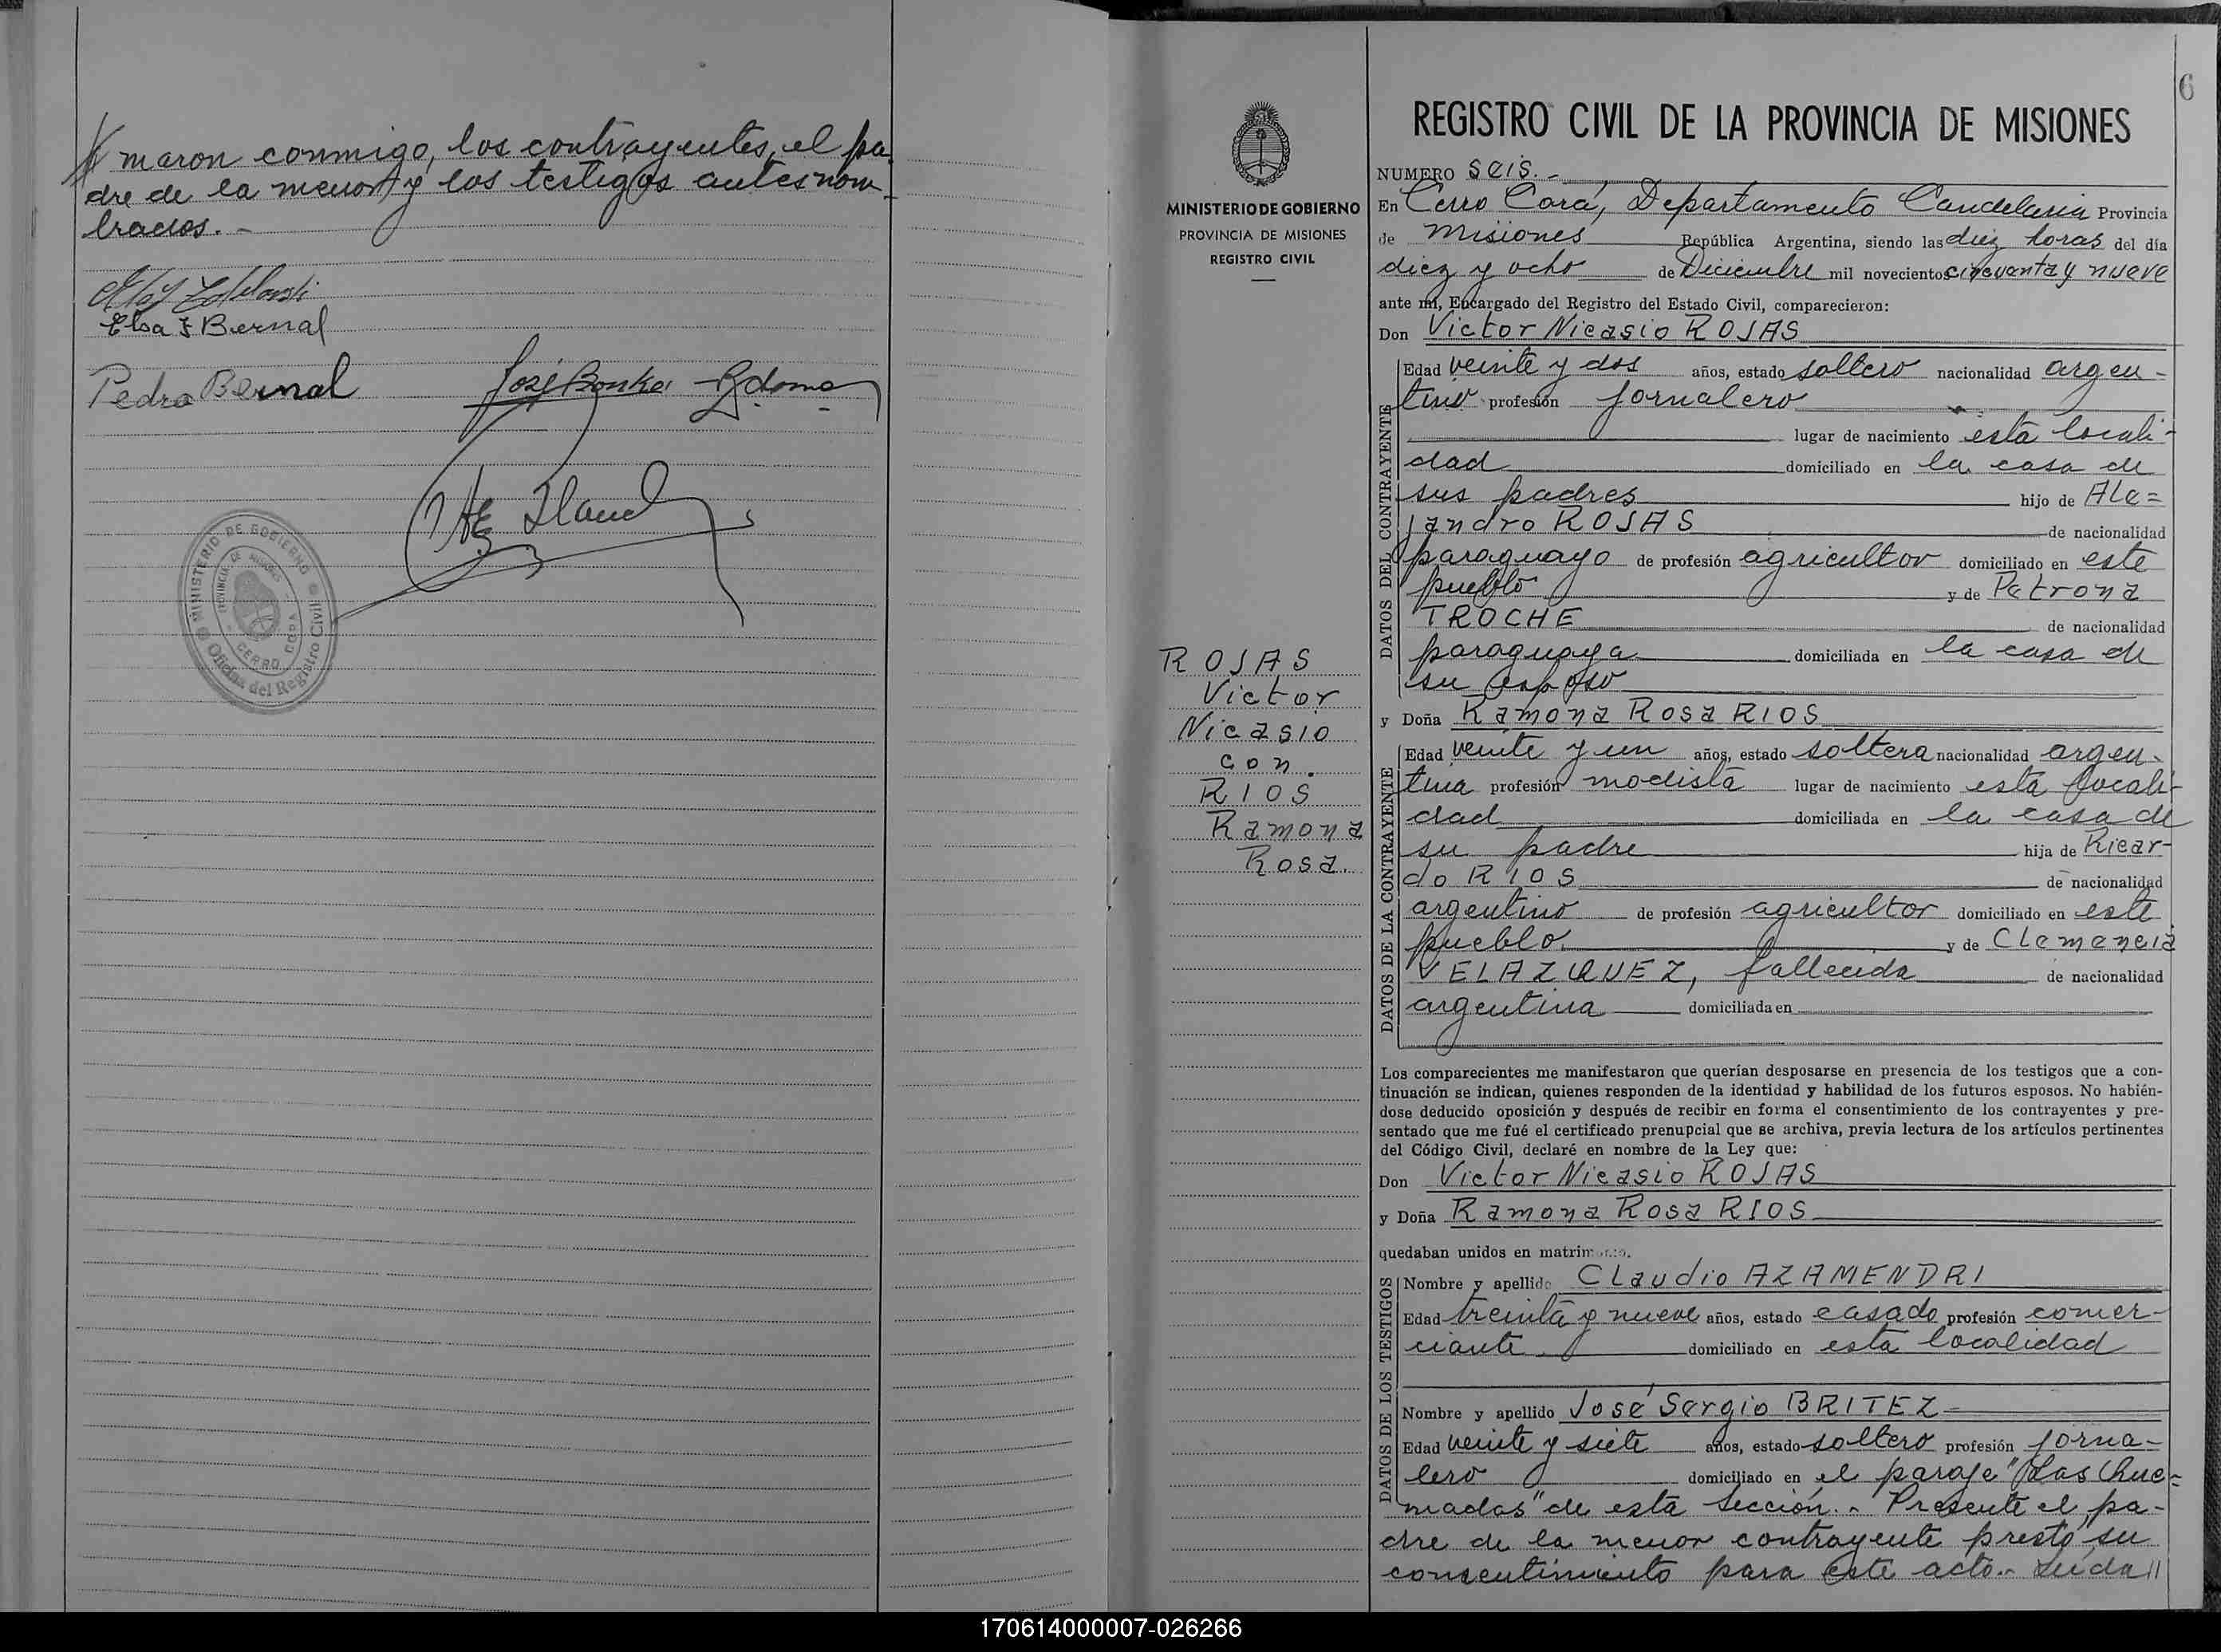 maron conmigo, los contrayentes, el pa-
dre de la menor y los testigos antes nom-
brados.-
Elsa F Bernal
Pedro Bernal
MINISTERIO DE GOBIERNO
PROVINCIA DE MISIONES
CERRO CORA
Oficina del Registro Civil
6
MINISTERIO DE GOBIERNO
PROVINCIA DE MISIONES
REGISTRO CIVIL
ROJAS
Victor
Nicasio
con
RIOS
Ramona
Rosa.
REGISTRO CIVIL DE LA PROVINCIA DE MISIONES
NUMERO seis.-
En Cerro Corá, Departamento Candelaria Provincia
de Misiones República Argentina, siendo las diez horas del día
diez y ocho de Diciembre mil novecientos cincuenta y nueve
ante mí, Encargado del Registro del Estado Civil, comparecieron:
Don Victor Nicasio ROJAS
DATOS DEL CONTRAYENTE
Edad veinte y dos años, estado soltero nacionalidad argen-
tino profesión jornalero
lugar de nacimiento esta locali-
dad domiciliado en la casa de
sus padres hijo de Ale=
jandro ROJAS de nacionalidad
paraguayo de profesión agricultor domiciliado en este
pueblo y de Petrona
TROCHE de nacionalidad
paraguaya domiciliada en la casa de
su esposo
y Doña Ramona Rosa RIOS
DATOS DE LA CONTRAYENTE
Edad veinte y un años, estado soltera nacionalidad argen-
tina profesión modista lugar de nacimiento esta locali-
dad domiciliada en la casa de
su padre hija de Ricar-
do RIOS de nacionalidad
argentino de profesión agricultor domiciliado en este
pueblo. y de Clemencia
VELAZQUEZ, fallecida de nacionalidad
argentina domiciliada en
Los comparecientes me manifestaron que querían desposarse en presencia de los testigos que a con-
tinuación se indican, quienes responden de la identidad y habilidad de los futuros esposos. No habién-
dose deducido oposición y después de recibir en forma el consentimiento de los contrayentes y pre-
sentado que me fué el certificado prenupcial que se archiva, previa lectura de los artículos pertinentes
del Código Civil, declaré en nombre de la Ley que:
Don Victor Nicasio ROJAS
y Doña Ramona Rosa RIOS
quedaban unidos en matrimonio.
DATOS DE LOS TESTIGOS
Nombre y apellido Claudio AZAMENDRI
Edad treinta y nueve años, estado casado profesión comer-
ciante domiciliado en esta localidad
Nombre y apellido José Sergio BRITEZ
Edad veinte y siete años, estado soltero profesión jorna-
lero domiciliado en el paraje "Las Que=
madas" de esta Sección.- Presente el pa-
dre de la menor contrayente prestó su
consentimiento para este acto.- Leída//
170614000007-026266